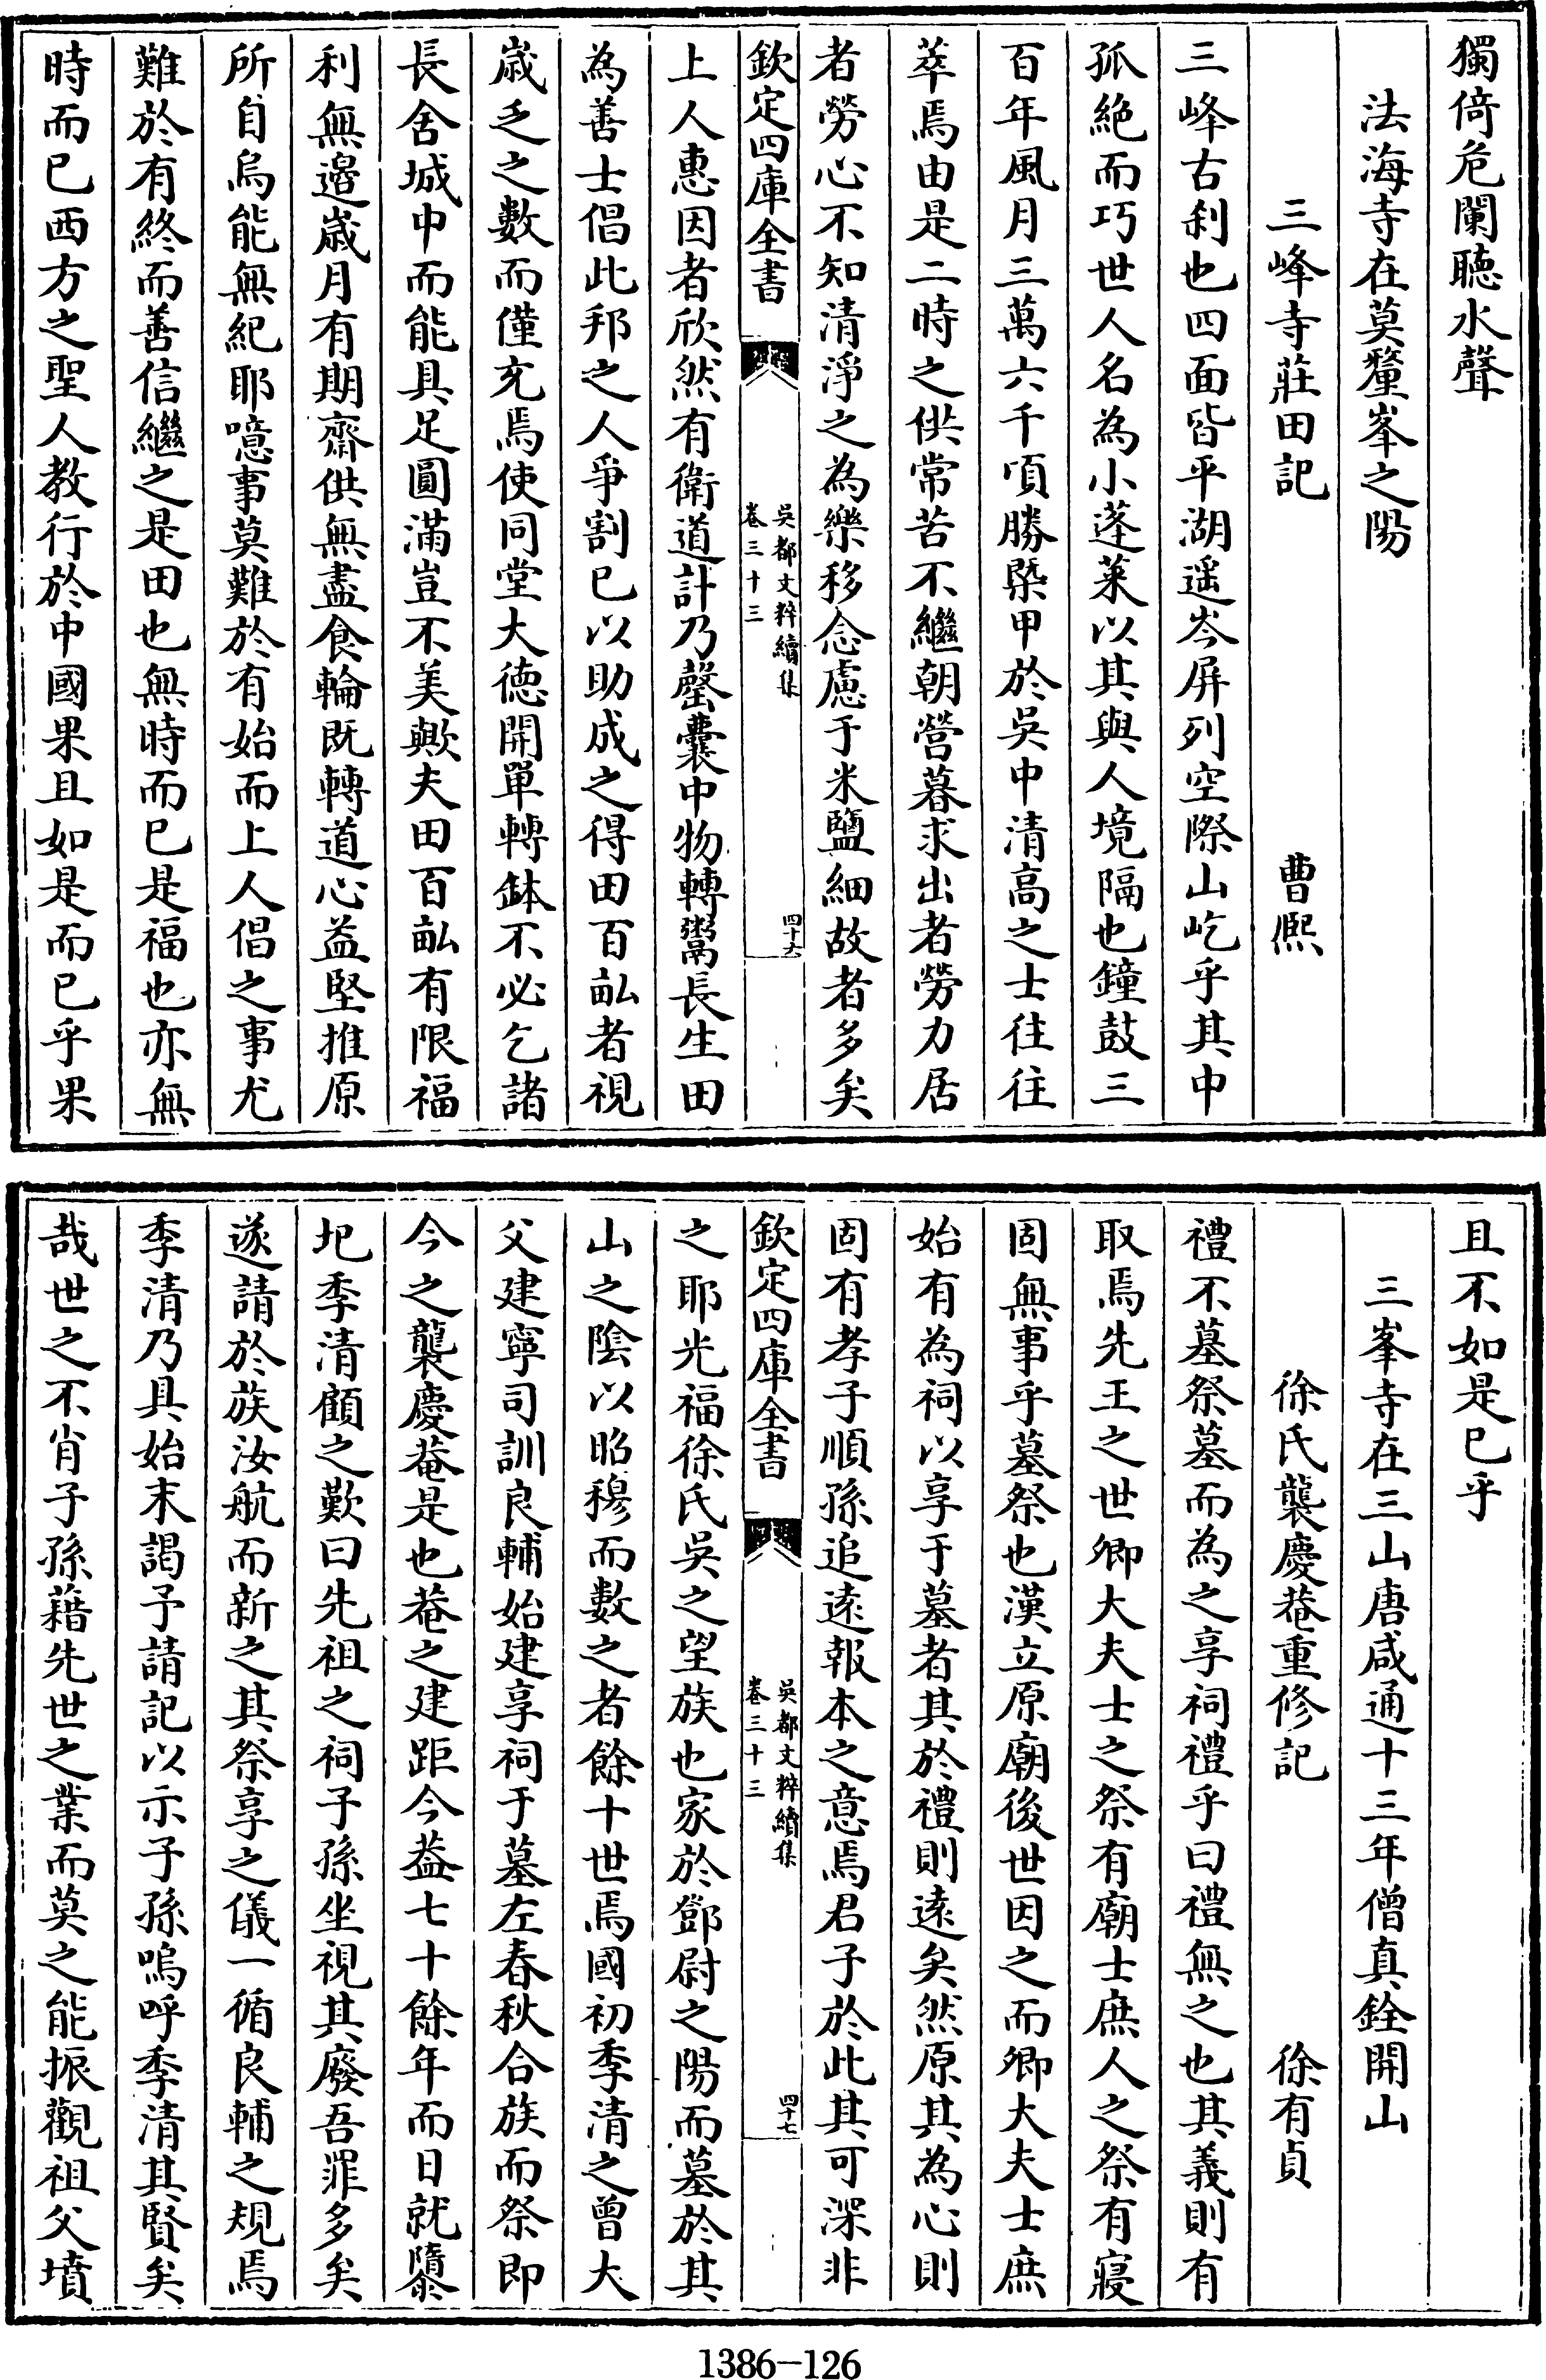 獨倚危闌聽水聲
法海寺在莫釐峯之陽
三峰寺莊田記
曹熈
三峰古刹也四面皆平湖遥岑屏列空際山屹乎其中
孤絶而巧世人名為小蓬萊以其與人境隔也鐘鼓三
百年風月三萬六千頃勝槩甲於吳中清高之士往往
萃焉由是二時之供常苦不繼朝營暮求出者勞力居
者勞心不知清淨之為樂移念慮于米鹽細故者多矣
欽定四庫全書
吳都文粹續集
卷三十三
四十六
上人惠因者欣然有衛道計乃罄囊中物轉鬻長生田
為善士倡此邦之人爭割已以助成之得田百畝者視
歳乏之數而僅充焉使同堂大徳開單轉鉢不必乞諸
長舍城中而能具足圓滿豈不美歟夫田百畝有限福
利無邉歳月有期齋供無盡食輪既轉道心益堅推原
所自烏能無紀耶噫事莫難於有始而上人倡之事尤
難於有終而善信繼之是田也無時而已是福也亦無
時而已西方之聖人教行於中國果且如是而已乎果
且不如是已乎
三峯寺在三山唐咸通十三年僧真銓開山
徐氏襲慶菴重修記
徐有貞
禮不墓祭墓而為之享祠禮乎曰禮無之也其義則有
取焉先王之世卿大夫士之祭有廟士庶人之祭有寢
固無事乎墓祭也漢立原廟後世因之而卿大夫士庶
始有為祠以享于墓者其於禮則逺矣然原其為心則
固有孝子順孫追逺報本之意焉君子於此其可深非
欽定四庫全書
吳都文粹續集
卷三十三
四十七
之耶光福徐氏吳之望族也家於鄧尉之陽而墓於其
山之陰以昭穆而數之者餘十世焉國初季清之曾大
父建寧司訓良輔始建享祠于墓左春秋合族而祭即
今之襲慶菴是也菴之建距今葢七十餘年而日就隳
圮季清顧之歎曰先祖之祠子孫坐視其廢吾罪多矣
遂請於族汝航而新之其祭享之儀一循良輔之規焉
季清乃具始末謁予請記以示子孫嗚呼季清其賢矣
哉世之不肖子孫藉先世之業而莫之能振觀祖父墳
1386-126